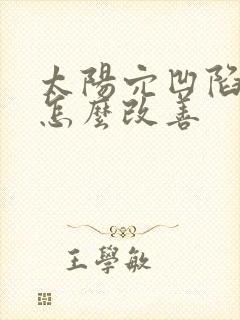 太陽穴凹陷
怎麼改善
王學敏